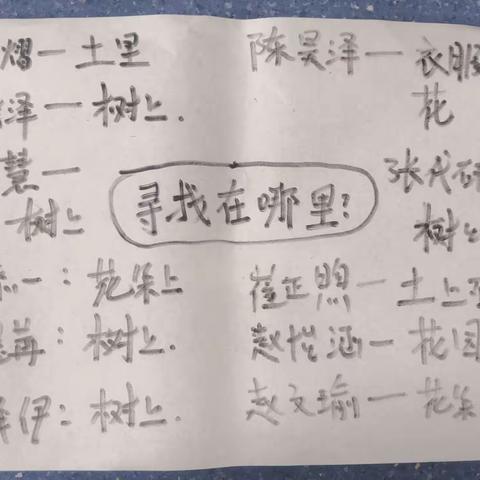 熠一土里
泽一树上.
慧一
一树上
寻找在哪里?
一:花朵上
苒:树上.
伊:树上.
陈昊泽一衣服
花
张代研
树上
崔正煦一土上
赵恺涵一花园
赵文瑜一花朵